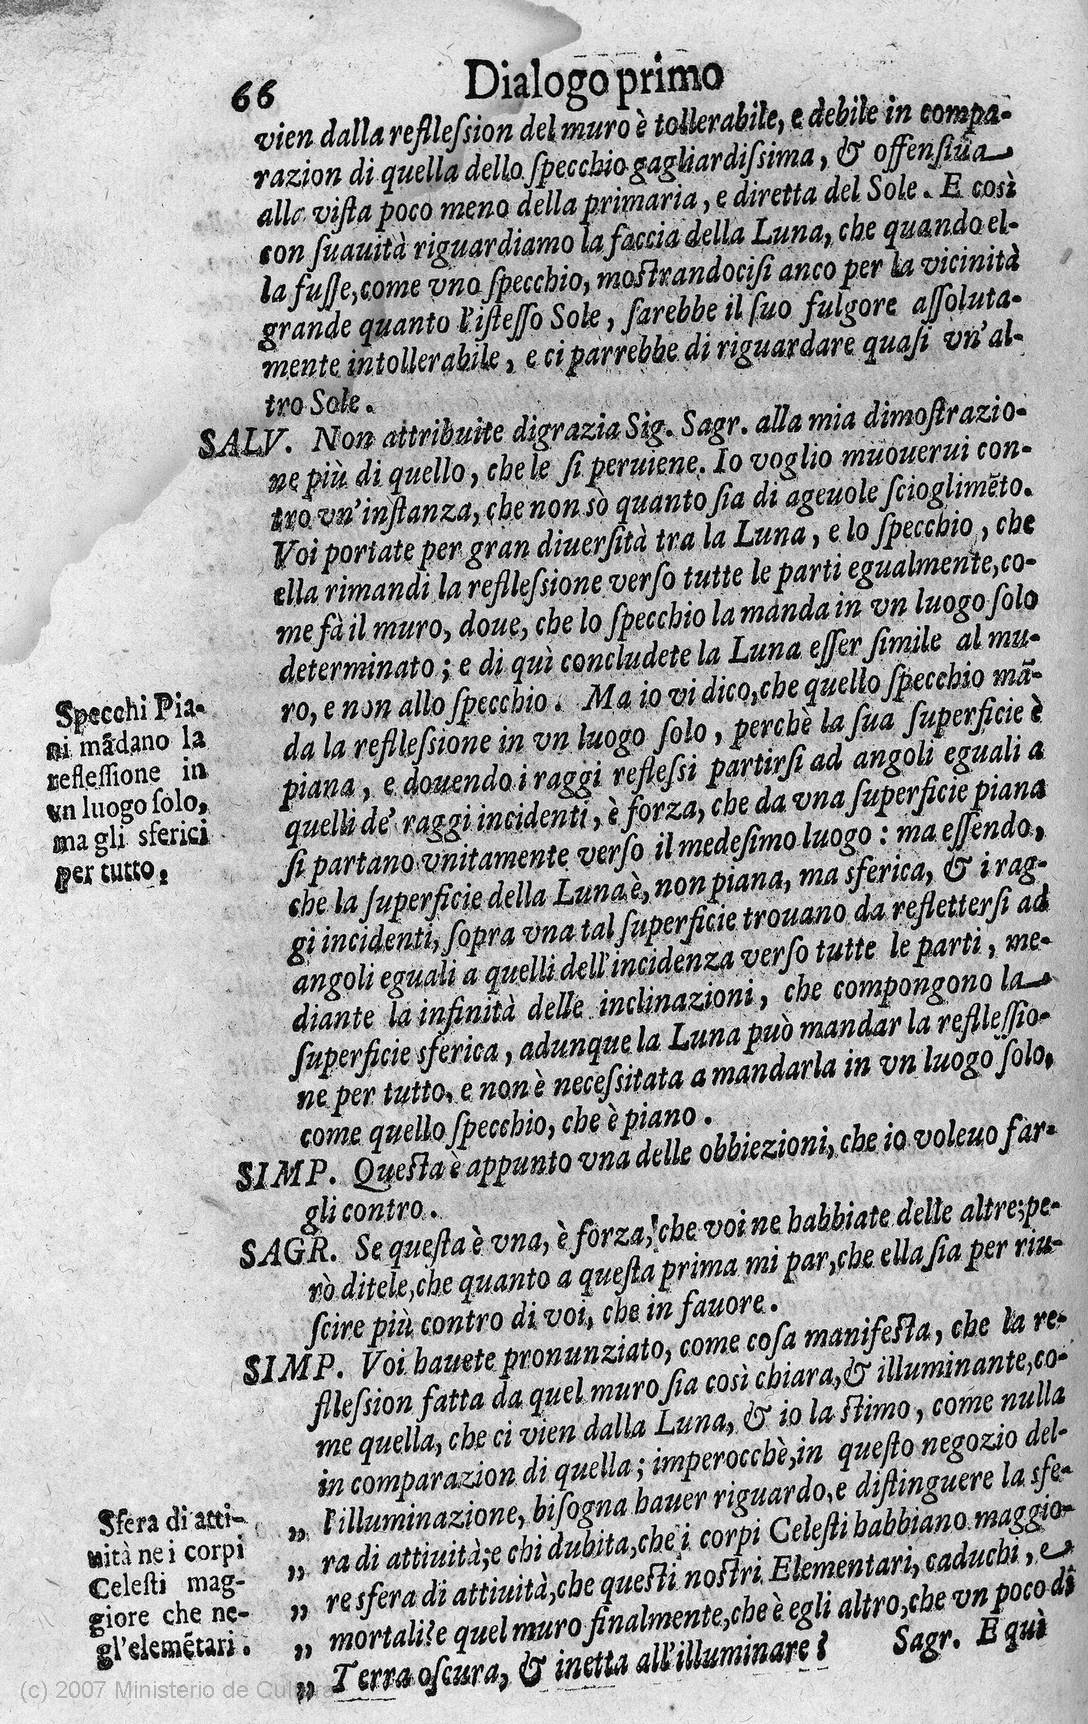 66
Dialogo primo
vien dalla reflleſsion del muro è tollerabile, e debile in compa-
razion di quella dello ſpecchio gagliardiſsima, & offenſiua
alla viſta poco meno della primaria, e diretta del Sole. E così
con ſuauità riguardiamo la faccia della Luna, che quando el-
la fuſſe, come vno ſpecchio, moſtrandociſi anco per la vicinità
grande quanto l'iſteſſo Sole, ſarebbe il ſuo fulgore aſſoluta-
mente intollerabile, e ci parrebbe di riguardare quaſi vn'al-
tro Sole.
SALV. Non attribuite digrazia Sig. Sagr. alla mia dimoſtrazio-
ne più di quello, che le ſi peruiene. Io voglio muouerui con-
tro vn'inſtanza, che non sò quanto ſia di ageuole ſcioglimẽto.
Voi portate per gran diuerſità tra la Luna, e lo ſpecchio, che
ella rimandi la reflleſsione verſo tutte le parti egualmente, co-
me fà il muro, doue, che lo ſpecchio la manda in vn luogo ſolo
determinato; e di quì concludete la Luna eſſer ſimile al mu-
ro, e non allo ſpecchio. Ma io vi dico, che quello ſpecchio mã-
da la reflleſsione in vn luogo ſolo, perchè la ſua ſuperficie è
piana, e douendo i raggi refleſsi partirſi ad angoli eguali a
quelli de' raggi incidenti, è forza, che da vna ſuperficie piana
ſi partano vnitamente verſo il medeſimo luogo: ma eſſendo,
che la ſuperficie della Luna è, non piana, ma sferica, & i rag-
gi incidenti, ſopra vna tal ſuperficie trouano da refletterſi ad
angoli eguali a quelli dell'incidenza verſo tutte le parti, me-
diante la infinità delle inclinazioni, che compongono la
ſuperficie sferica, adunque la Luna può mandar la reflleſſio-
ne per tutto, e non è neceſsitata a mandarla in vn luogo ſolo,
come quello ſpecchio, che è piano.
Specchi Pia-
ni mãdano la
refleſſione in
vn luogo ſolo,
ma gli sferici
per tutto.
SIMP. Queſta è appunto vna delle obbiezioni, che io voleuo far-
gli contro.
SAGR. Se queſta è vna, è forza, che voi ne habbiate delle altre; pe-
rò ditele, che quanto a queſta prima mi par, che ella ſia per riu-
ſcire più contro di voi, che in fauore.
SIMP. Voi hauete pronunziato, come coſa manifeſta, che la re-
flleſsion fatta da quel muro ſia così chiara, & illuminante, co-
me quella, che ci vien dalla Luna, & io la ſtimo, come nulla
in comparazion di quella; imperocchè, in queſto negozio del-
„ l'illuminazione, biſogna hauer riguardo, e diſtinguere la sfe-
„ ra di attiuità; e chi dubita, che i corpi Celeſti habbiano maggio-
„ re sfera di attiuità, che queſti noſtri Elementari, caduchi, e
„ mortali? e quel muro finalmente, che è egli altro, che vn poco di
„ Terra oſcura, & inetta all'illuminare? Sagr. E quì
Sfera di atti-
uità ne i corpi
Celeſti mag-
giore che ne-
gl'elemẽtari.
(c) 2007 Ministerio de Cultura